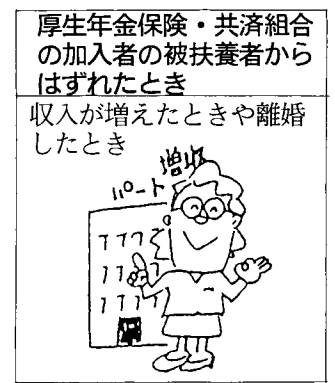 厚生年金保険・共済組合
の加入者の被扶養者から
はずれたとき
収入が増えたときや離婚
したとき
パート増収